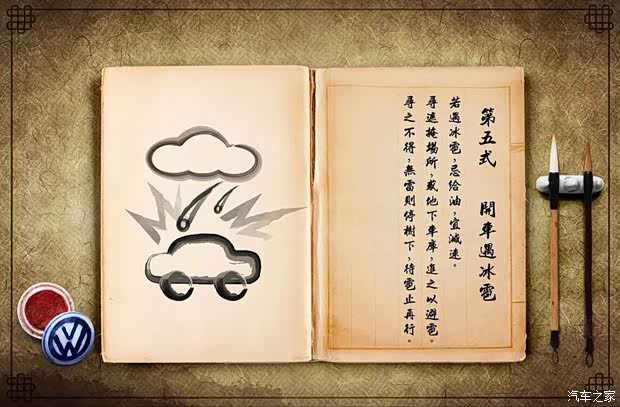 第五式 開車遇冰雹
若遇冰雹，忌給油，宜減速。
尋遮掩場所，或地下車庫，進之以避雹。
尋之不得，無雷則停樹下，待雹止再行。
VW
汽车之家